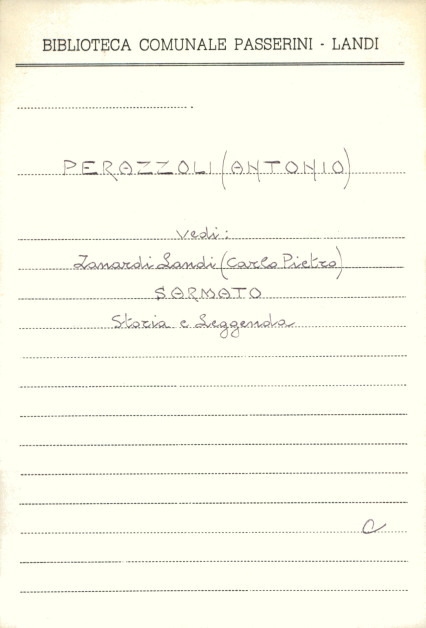 BIBLIOTECA COMUNALE PASSERINI - LANDI
PERAZZOLI (ANTONIO)
vedi:
Zanardi Landi (Carlo Pietro)
SARMATO
Storia e Leggenda
C